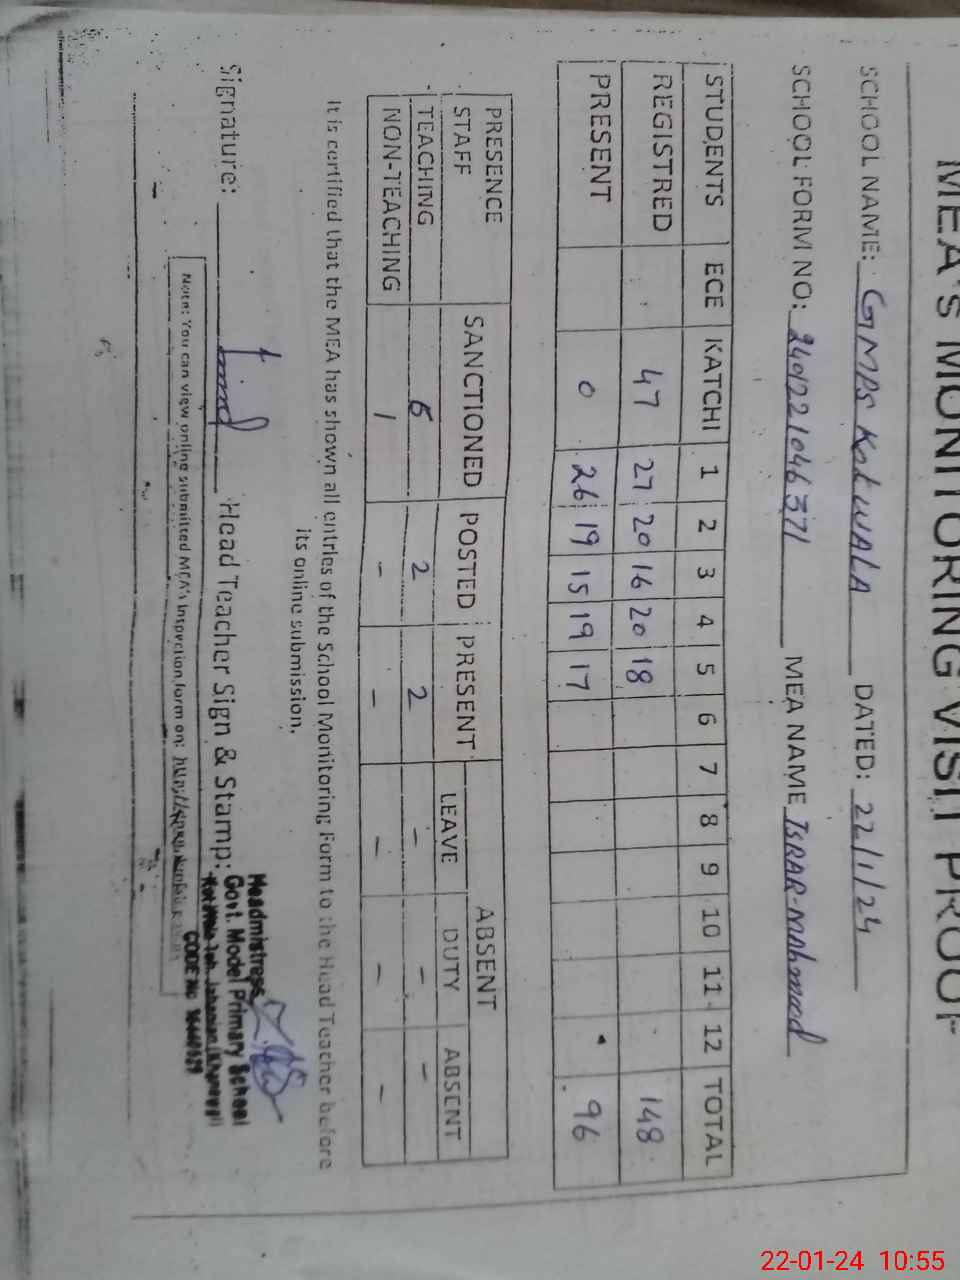 MEA'S MONITORING VISIT PROOF
SCHOOL NAME: GMPS Kotwala DATED: 22/1/24
SCHOOL FORM NO: 2401221046371 MEA NAME ISRAR-Mahmood
STUDENTS ECE KATCHI 1 2 3 4 5 6 7 8 9 10 11 12 TOTAL
REGISTRED 47 27 20 16 20 18 148
PRESENT 0 26 19 15 19 17 96
PRESENCE STAFF SANCTIONED POSTED PRESENT ABSENT
LEAVE DUTY ABSENT
TEACHING 6 2 2 - - -
NON-TEACHING 1 - - - - -
It is certified that the MEA has shown all entries of the School Monitoring Form to the Head Teacher before
its online submission.
Signature: Head Teacher Sign & Stamp:
Headmistress
Govt. Model Primary School
Kot Wala Teh. Jahanian (Khanewal)
CODE No
Note: You can view online submitted MEA's Inspection form on:
22-01-24 10:55